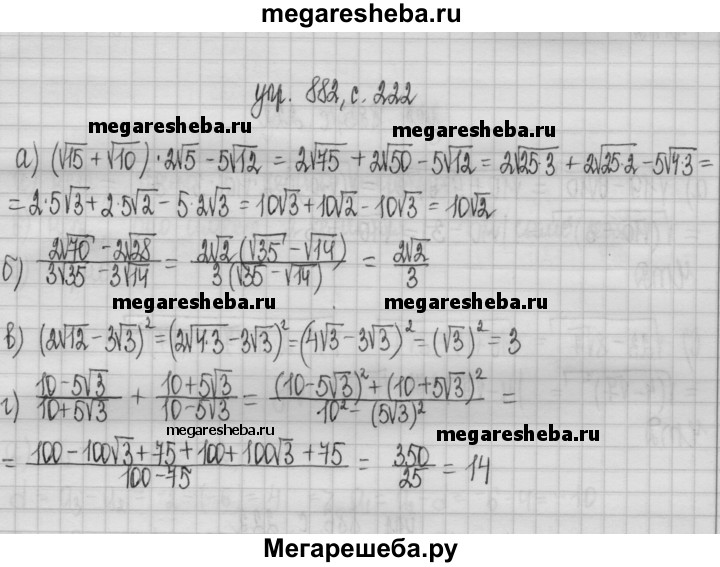 megaresheba.ru
упр. 882, с. 222
megaresheba.ru megaresheba.ru
а) (√15 + √10) · 2√5 - 5√12 = 2√75 + 2√50 - 5√12 = 2√25·3 + 2√25·2 - 5√4·3 =
= 2·5√3 + 2·5√2 - 5·2√3 = 10√3 + 10√2 - 10√3 = 10√2
б) (2√70 - 2√28)/(3√35 - 3√14) = (2√2 (√35 - √14))/(3 (√35 - √14)) = 2√2/3
megaresheba.ru megaresheba.ru
в) (2√12 - 3√3)² = (2√4·3 - 3√3)² = (4√3 - 3√3)² = (√3)² = 3
г) (10 - 5√3)/(10 + 5√3) + (10 + 5√3)/(10 - 5√3) = ((10 - 5√3)² + (10 + 5√3)²)/(10² - (5√3)²) =
megaresheba.ru megaresheba.ru
= (100 - 100√3 + 75 + 100 + 100√3 + 75)/(100 - 75) = 350/25 = 14
Мегарешеба.ру